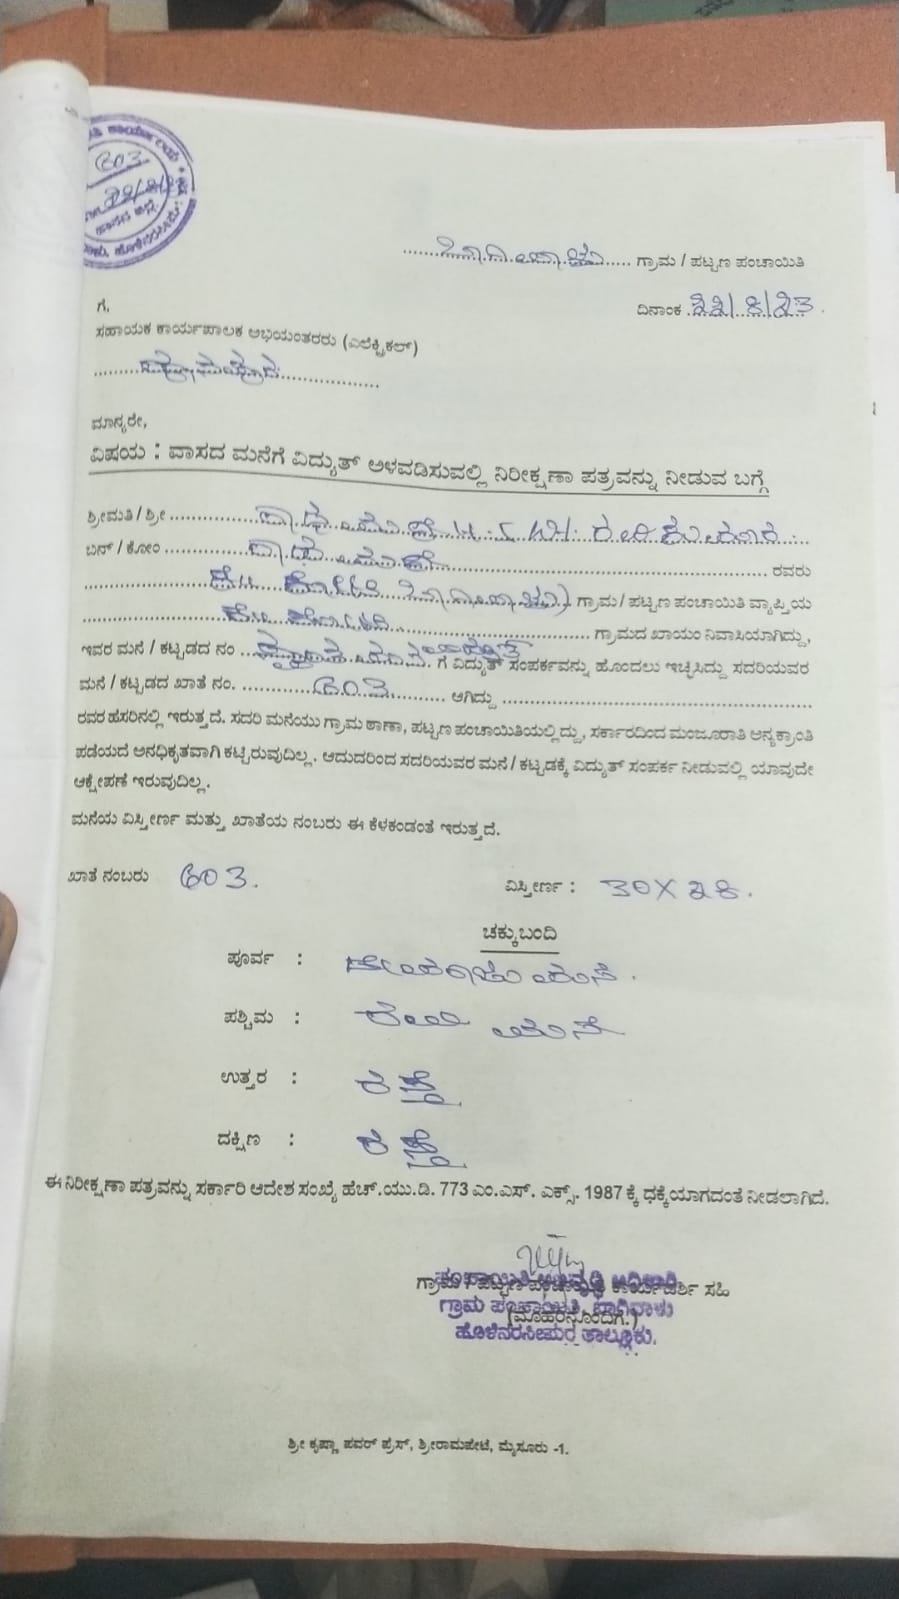 603
ಗ್ರಾಮ / ಪಟ್ಟಣ ಪಂಚಾಯಿತಿ
ದಿನಾಂಕ 22/8/23.
ಗೆ,
ಸಹಾಯಕ ಕಾರ್ಯಪಾಲಕ ಅಭಿಯಂತರರು (ಎಲೆಕ್ಟ್ರಿಕಲ್)
ಮಾನ್ಯರೇ,
ವಿಷಯ : ವಾಸದ ಮನೆಗೆ ವಿದ್ಯುತ್ ಅಳವಡಿಸುವಲ್ಲಿ ನಿರೀಕ್ಷಣಾ ಪತ್ರವನ್ನು ನೀಡುವ ಬಗ್ಗೆ
ಶ್ರೀಮತಿ / ಶ್ರೀ
ಬಿನ್ / ಕೋಂ ರವರು
ಗ್ರಾಮ / ಪಟ್ಟಣ ಪಂಚಾಯಿತಿ ವ್ಯಾಪ್ತಿಯ
ಗ್ರಾಮದ ಖಾಯಂ ನಿವಾಸಿಯಾಗಿದ್ದು,
ಇವರ ಮನೆ / ಕಟ್ಟಡದ ನಂ ಗೆ ವಿದ್ಯುತ್ ಸಂಪರ್ಕವನ್ನು ಹೊಂದಲು ಇಚ್ಛಿಸಿದ್ದು ಸದರಿಯವರ
ಮನೆ / ಕಟ್ಟಡದ ಖಾತೆ ನಂ. 603 ಆಗಿದ್ದು
ರವರ ಹೆಸರಿನಲ್ಲಿ ಇರುತ್ತದೆ. ಸದರಿ ಮನೆಯು ಗ್ರಾಮ ಠಾಣಾ, ಪಟ್ಟಣ ಪಂಚಾಯಿತಿಯಲ್ಲಿದ್ದು, ಸರ್ಕಾರದಿಂದ ಮಂಜೂರಾತಿ ಅನ್ಯಕ್ರಾಂತಿ
ಪಡೆಯದೆ ಅನಧಿಕೃತವಾಗಿ ಕಟ್ಟಿರುವುದಿಲ್ಲ. ಆದುದರಿಂದ ಸದರಿಯವರ ಮನೆ / ಕಟ್ಟಡಕ್ಕೆ ವಿದ್ಯುತ್ ಸಂಪರ್ಕ ನೀಡುವಲ್ಲಿ ಯಾವುದೇ
ಆಕ್ಷೇಪಣೆ ಇರುವುದಿಲ್ಲ.
ಮನೆಯ ವಿಸ್ತೀರ್ಣ ಮತ್ತು ಖಾತೆಯ ನಂಬರು ಈ ಕೆಳಕಂಡಂತೆ ಇರುತ್ತದೆ.
ಖಾತೆ ನಂಬರು 603. ವಿಸ್ತೀರ್ಣ : 30X28.
ಚಕ್ಕುಬಂದಿ
ಪೂರ್ವ : ಮನೆ.
ಪಶ್ಚಿಮ : ಮನೆ
ಉತ್ತರ : ರಸ್ತೆ
ದಕ್ಷಿಣ : ರಸ್ತೆ
ಈ ನಿರೀಕ್ಷಣಾ ಪತ್ರವನ್ನು ಸರ್ಕಾರಿ ಆದೇಶ ಸಂಖ್ಯೆ ಹೆಚ್.ಯು.ಡಿ. 773 ಎಂ.ಎಸ್. ಎಕ್ಸ್. 1987 ಕ್ಕೆ ಧಕ್ಕೆಯಾಗದಂತೆ ನೀಡಲಾಗಿದೆ.
ಪಂಚಾಯಿತಿ ಅಭಿವೃದ್ಧಿ ಅಧಿಕಾರಿ
ಗ್ರಾಮ / ಪಟ್ಟಣ ಪಂಚಾಯಿತಿ ಕಾರ್ಯದರ್ಶಿ ಸಹಿ
ಗ್ರಾಮ ಪಂಚಾಯಿತಿ, ಬಾಗಿವಾಳು
(ಮೊಹರಿನೊಂದಿಗೆ.)
ಹೊಳೆನರಸೀಪುರ ತಾಲ್ಲೂಕು.
ಶ್ರೀ ಕೃಷ್ಣಾ ಪವರ್ ಪ್ರೆಸ್, ಶ್ರೀರಾಮಪೇಟೆ, ಮೈಸೂರು -1.